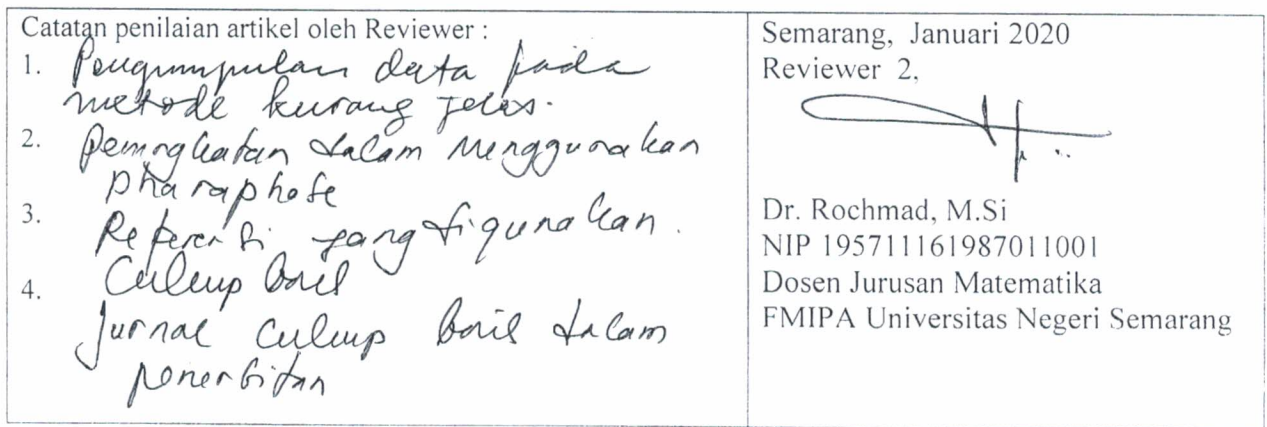 Catatan penilaian artikel oleh Reviewer :
1. Pengumpulan data pada
metode kurang jelas.
2. Peningkatan dalam menggunakan
pharaphose
3. Referensi yang digunakan.
Cukup baik
4. Jurnal cukup baik dalam
penerbitan
Semarang, Januari 2020
Reviewer 2,
Dr. Rochmad, M.Si
NIP 195711161987011001
Dosen Jurusan Matematika
FMIPA Universitas Negeri Semarang